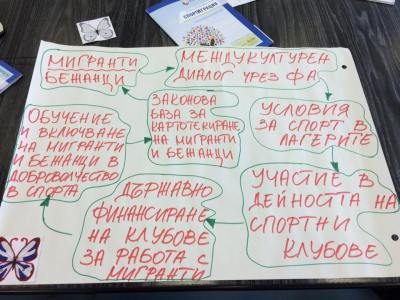 СПОРТИГРАЦИЯ
МИГРАНТИ
БЕЖАНЦИ
МЕЖДУКУЛТУРЕН
ДИАЛОГ ЧРЕЗ ФА
УСЛОВИЯ
ЗА СПОРТ В
ЛАГЕРИТЕ
УЧАСТИЕ В
ДЕЙНОСТТА НА
СПОРТНИ
КЛУБОВЕ
ДЪРЖАВНО
ФИНАНСИРАНЕ
НА КЛУБОВЕ
ЗА РАБОТА С
МИГРАНТИ
ОБУЧЕНИЕ
И ВКЛЮЧВАНЕ
НА МИГРАНТИ
И БЕЖАНЦИ В
ДОБРОВОЛЧЕСТВО
В СПОРТА
ЗАКОНОВА
БАЗА ЗА
КАРТОТЕКИРАНЕ
НА МИГРАНТИ
И БЕЖАНЦИ